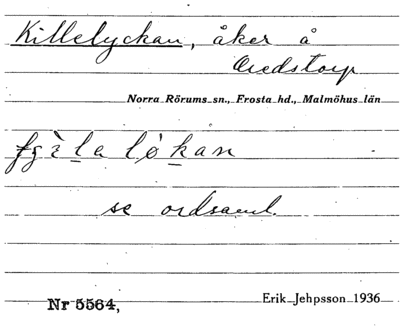 Killelyckan, åker å
Oredstorp
Norra Rörums sn., Frosta hd., Malmöhus län
se ordsaml.
Nr 5564,
Erik Jehpsson 1936